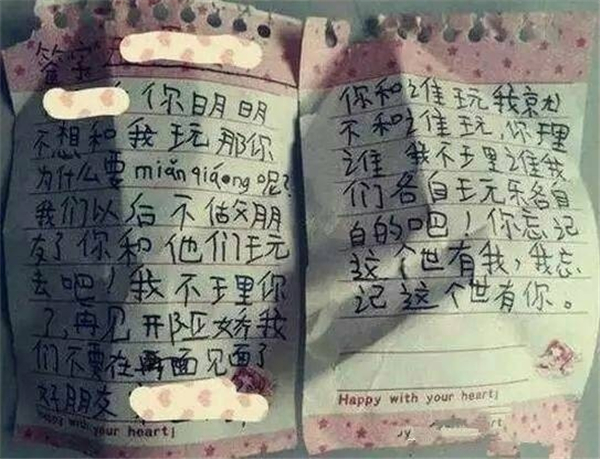 签字
你明明
不想和我玩那你
为什么要miǎnqiáong呢?
我们以后不做朋
友了你和他们玩
去吧！我不理你
了,再见 娇我
们不要在再面见面了
好朋友
with your heart;
你和谁玩我就
不和谁玩,你理
谁 我不理谁我
们各自玩乐各自
自的吧！你忘记
这个世有我，我忘
记这个世有你。
Happy with your heart;